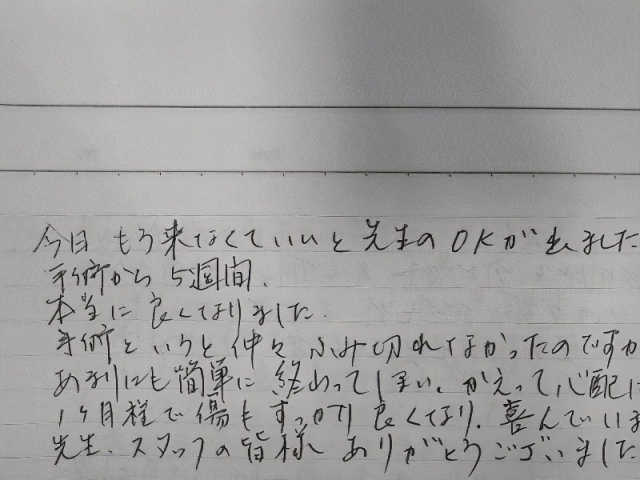 今日 もう来なくていいと先生のOKが出ました
手術から 5週間、
本当に 良くなりました.
手術というと仲々 ふみ切れなかったのですが
あまりにも簡単に 終わってしまい、かえって心配に
1ヶ月程で傷もすっかり良くなり、喜んでいま
先生、スタッフの皆様 ありがとうございました